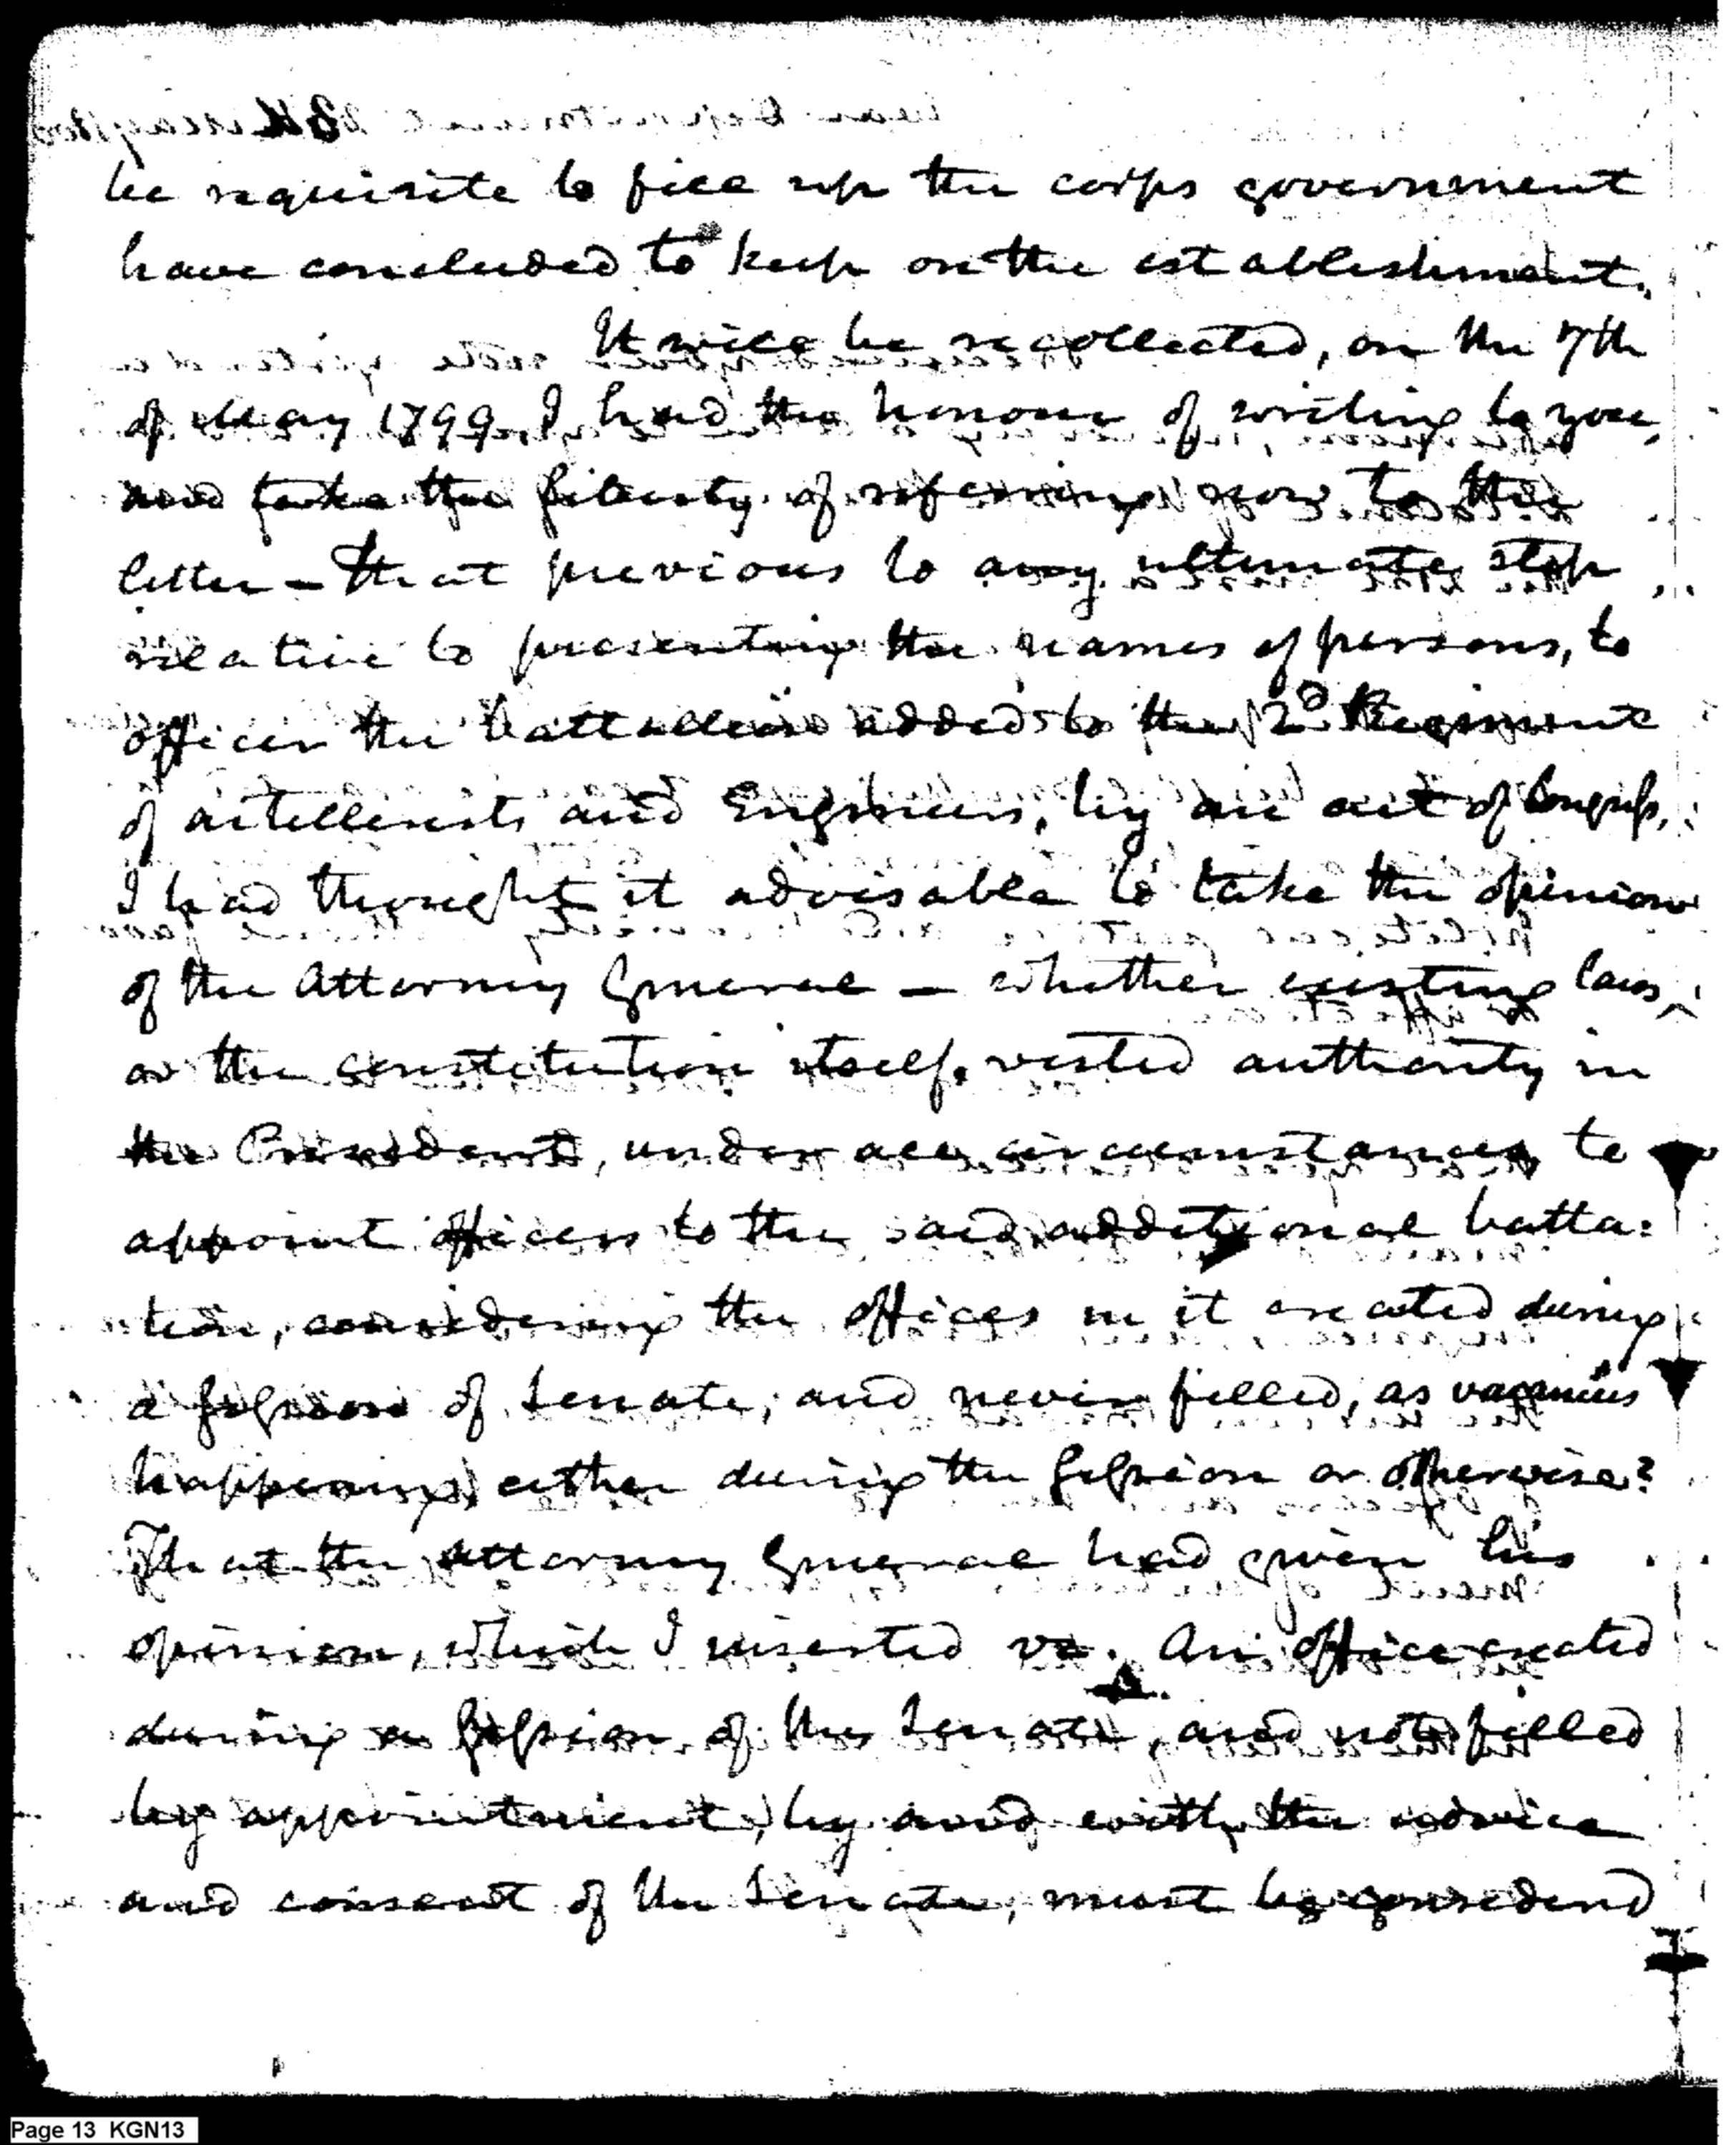 be requisite to fill up the corps government
have concluded to keep on the establishment.
It will be recollected, on the 7th
of May 1799, I had the honour of writing to you,
and take the liberty of referring now to the
letter – That previous to any ultimate step
relative to presenting the names of persons, to
officer the battallion added to the 2d Regiment
of artillerists and Engineers, by an act of Congress,
I had thought it advisable to take the opinion
of the Attorney General – whether existing laws,
or the constitution itself, vested authority in
the President, under all circumstances, to
appoint officers to the said additional batta:
lion, considering the offices in it created during
a session of Senate, and never filled, as vacancies
happening, either during the session or otherwise?
That the Attorney General had given his
opinion, which I inserted vz. An office created
during a session of the Senate, and not filled
by appointment, by and with the advice
and consent of the Senate, must be considered
Page 13 KGN13